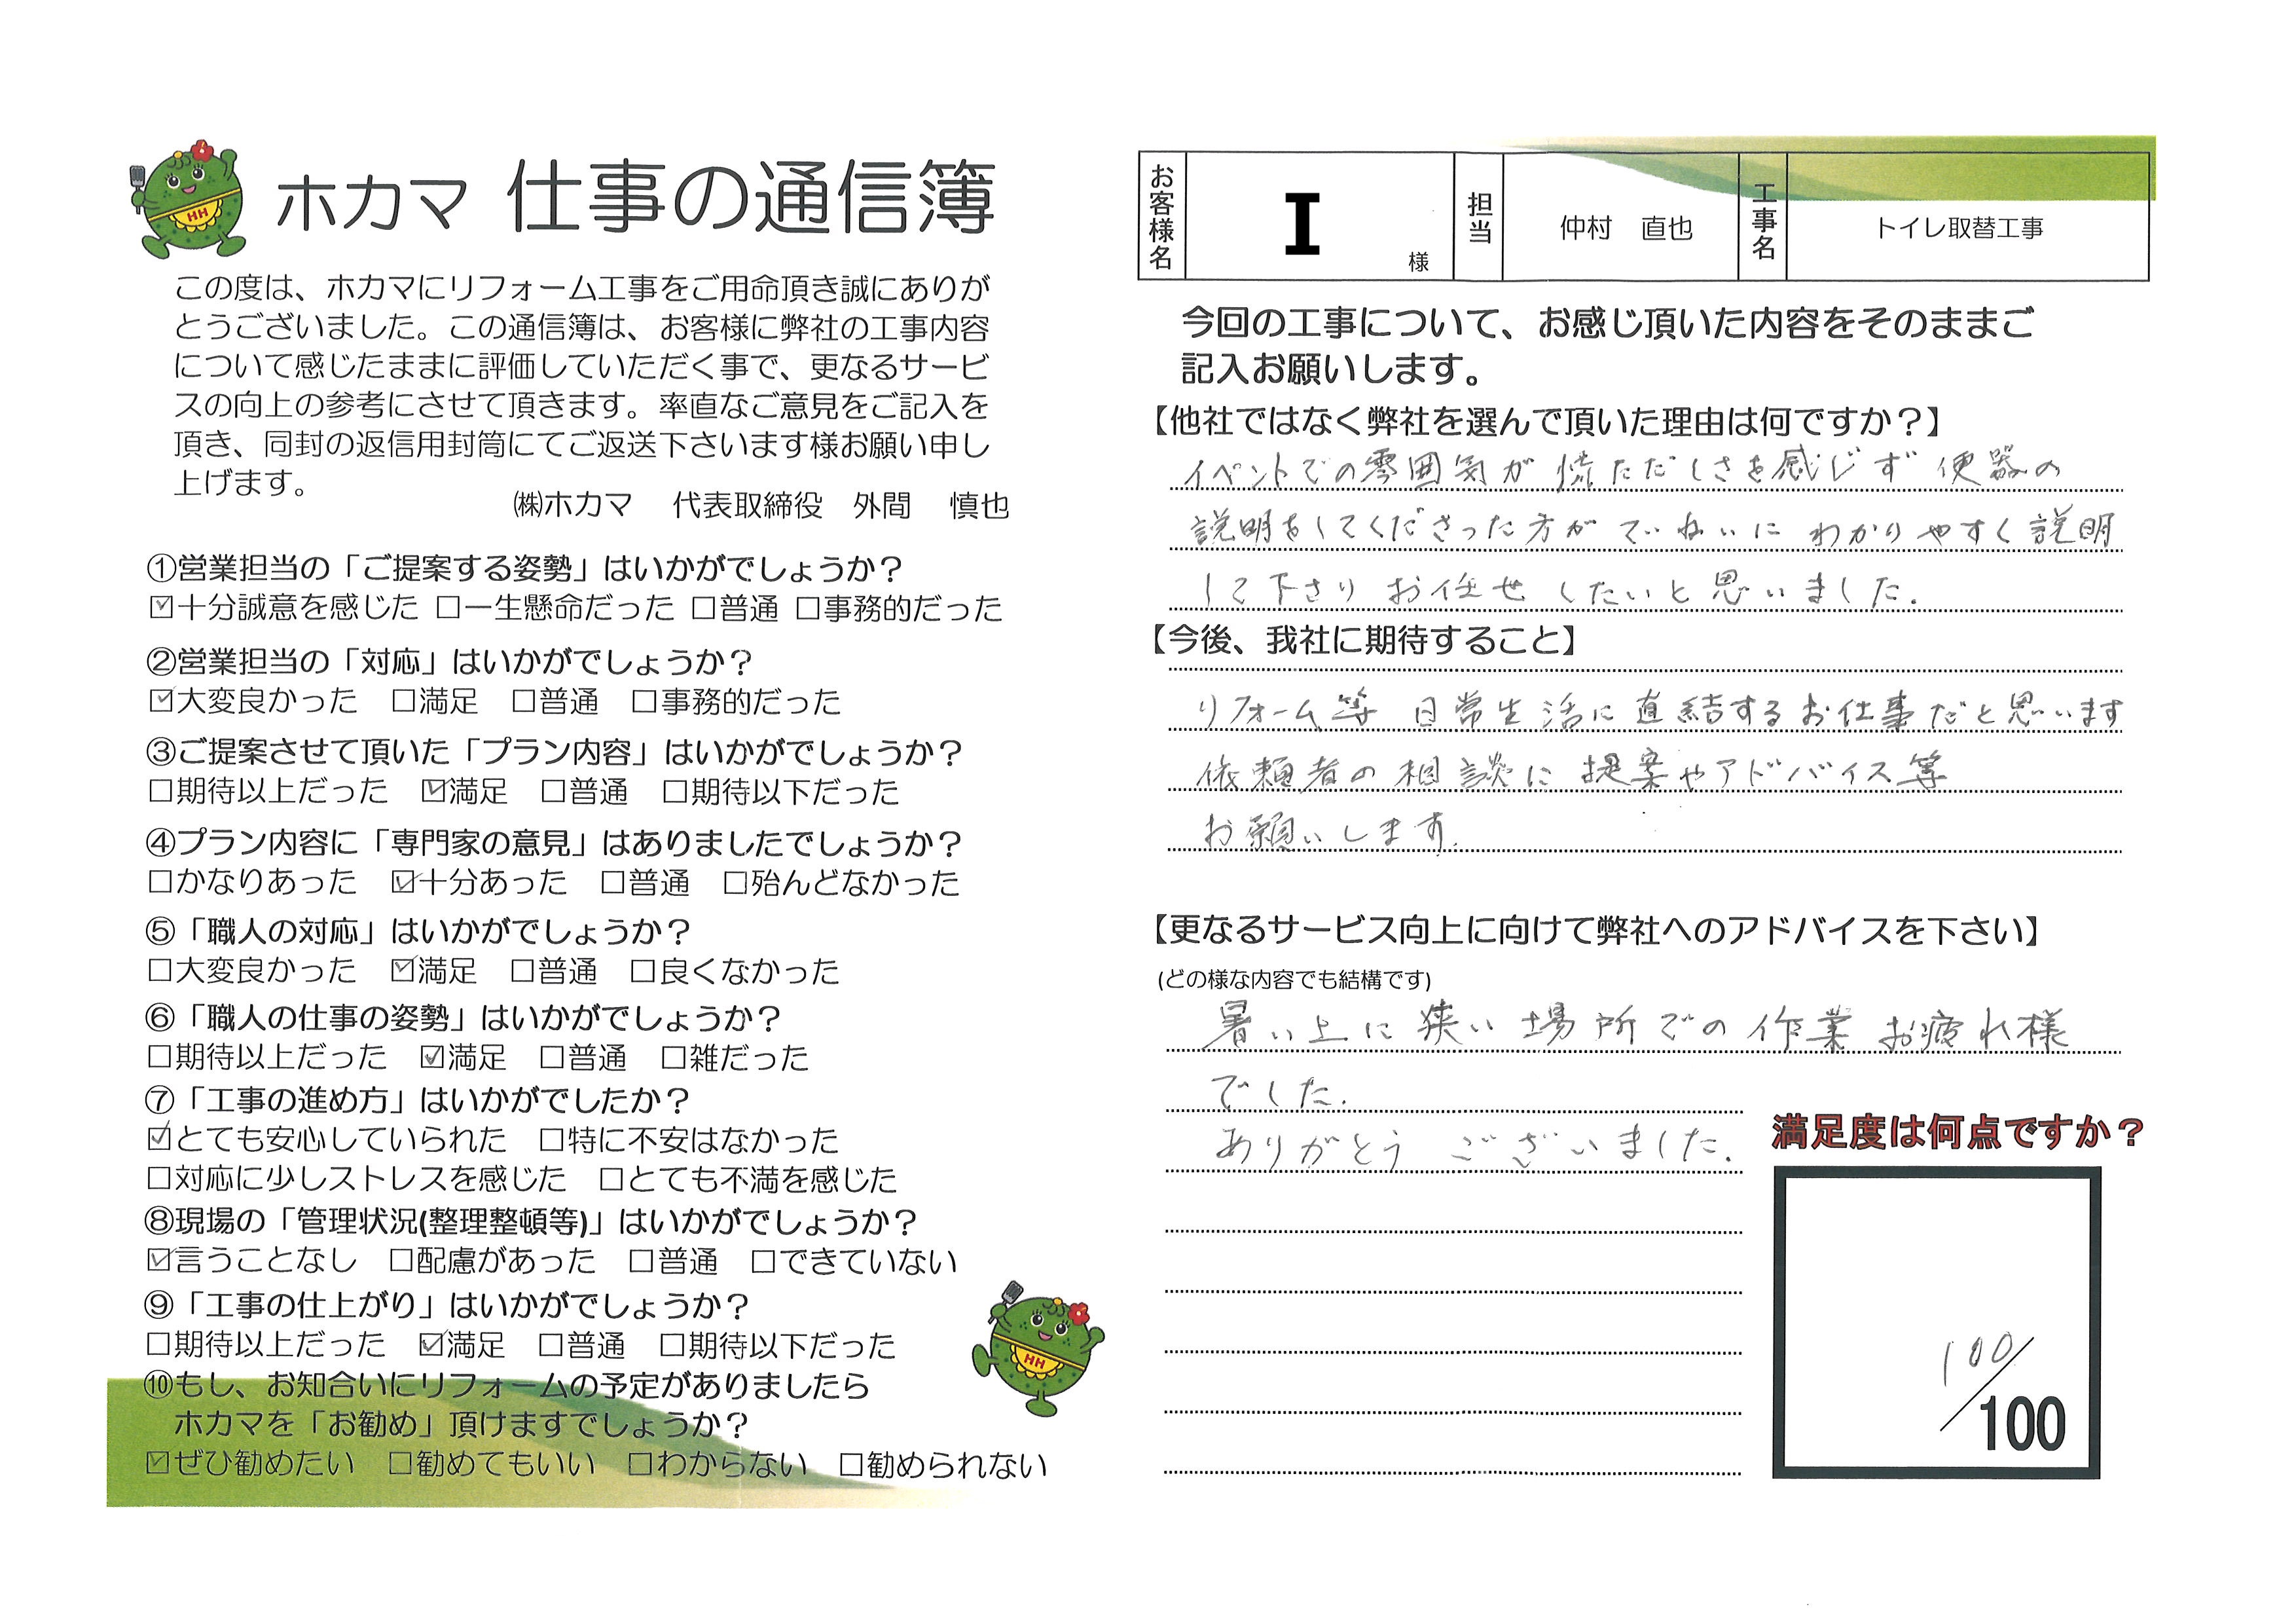 ホカマ 仕事の通信簿
この度は、ホカマにリフォーム工事をご用命頂き誠にありが
とうございました。この通信簿は、お客様に弊社の工事内容
について感じたままに評価していただく事で、更なるサービ
スの向上の参考にさせて頂きます。率直なご意見をご記入を
頂き、同封の返信用封筒にてご返送下さいます様お願い申し
上げます。
㈱ホカマ 代表取締役 外間 慎也
①営業担当の「ご提案する姿勢」はいかがでしょうか？
☑十分誠意を感じた □一生懸命だった □普通 □事務的だった
②営業担当の「対応」はいかがでしょうか？
☑大変良かった □満足 □普通 □事務的だった
③ご提案させて頂いた「プラン内容」はいかがでしょうか？
□期待以上だった ☑満足 □普通 □期待以下だった
④プラン内容に「専門家の意見」はありましたでしょうか？
□かなりあった ☑十分あった □普通 □殆んどなかった
⑤「職人の対応」はいかがでしょうか？
□大変良かった ☑満足 □普通 □良くなかった
⑥「職人の仕事の姿勢」はいかがでしょうか？
□期待以上だった ☑満足 □普通 □雑だった
⑦「工事の進め方」はいかがでしたか？
☑とても安心していられた □特に不安はなかった
□対応に少しストレスを感じた □とても不満を感じた
⑧現場の「管理状況(整理整頓等)」はいかがでしょうか？
☑言うことなし □配慮があった □普通 □できていない
⑨「工事の仕上がり」はいかがでしょうか？
□期待以上だった ☑満足 □普通 □期待以下だった
⑩もし、お知合いにリフォームの予定がありましたら
ホカマを「お勧め」頂けますでしょうか？
☑ぜひ勧めたい □勧めてもいい □わからない □勧められない
HH
HH
お客様名 I 様 担当 仲村 直也 工事名 トイレ取替工事
今回の工事について、お感じ頂いた内容をそのままご
記入お願いします。
【他社ではなく弊社を選んで頂いた理由は何ですか？】
イベントでの雰囲気が慌ただしさを感じず便器の
説明をしてくださった方がていねいにわかりやすく説明
して下さりお任せしたいと思いました.
【今後、我社に期待すること】
リフォーム等 日常生活に直結するお仕事だと思います
依頼者の相談に提案やアドバイス等
お願いします.
【更なるサービス向上に向けて弊社へのアドバイスを下さい】
(どの様な内容でも結構です)
暑い上に狭い場所での作業お疲れ様
でした.
ありがとうございました.
満足度は何点ですか？
100/100